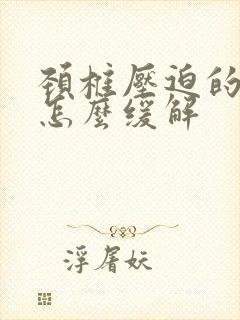 頸椎壓迫的
怎麼緩解
浮屠妖